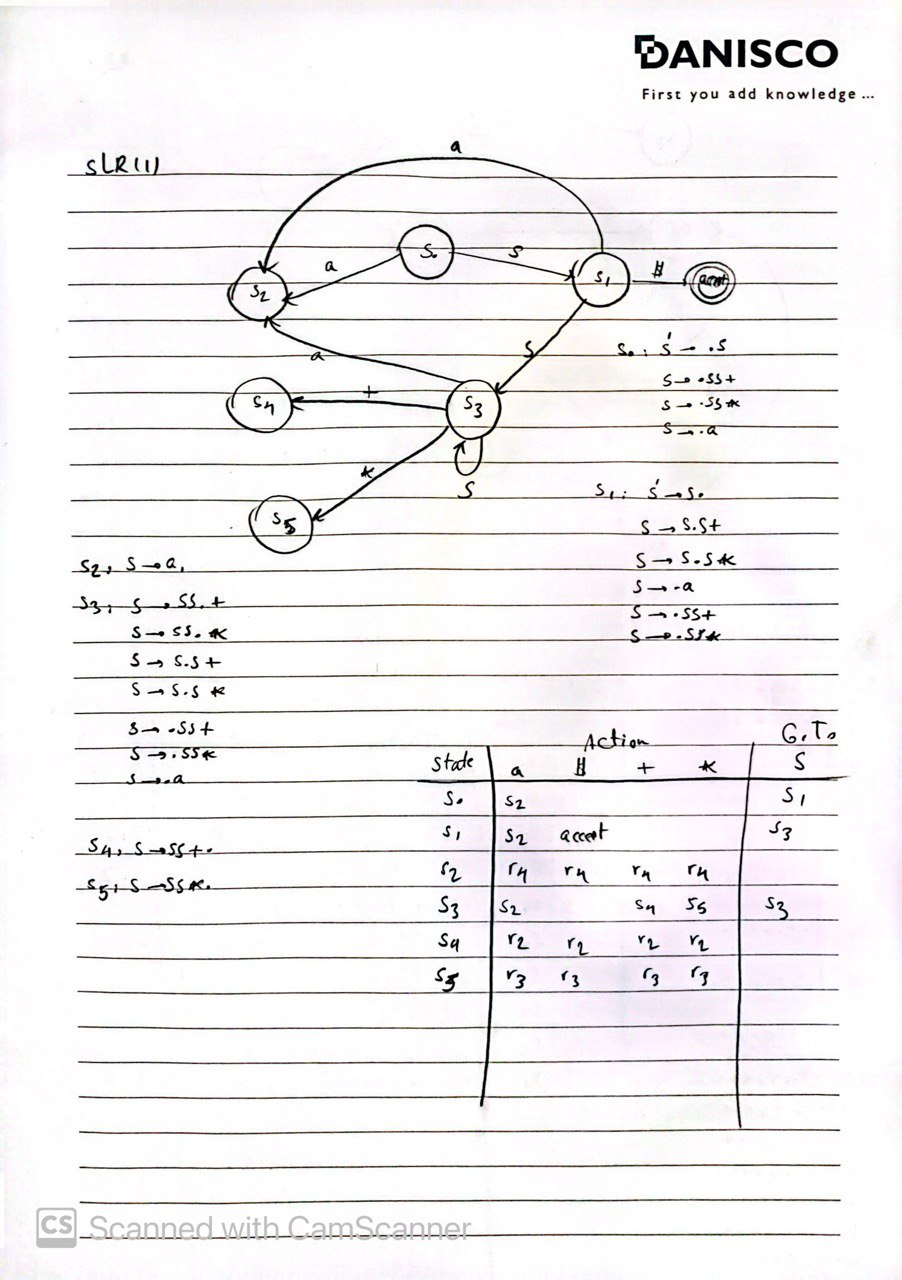 DANISCO
First you add knowledge ...
SLR(1)
a
S. S S1 # accept
a
S2
a
S
S0: S' → .S
S → .SS+
S → .SS*
S → .a
S4 + S3
*
S
S5
S1: S' → S.
S → S.S+
S → S.S*
S → .a
S → .SS+
S → .SS*
S2, S → a.
S3, S → SS.+
S → SS.*
S → S.S+
S → S.S*
S → .SS+
S → .SS*
S → .a
S4, S → SS+.
S5, S → SS*.
Action G.To
State a # + * S
S0 S2 S1
S1 S2 accept S3
S2 r4 r4 r4 r4
S3 S2 S4 S5 S3
S4 r2 r2 r2 r2
S5 r3 r3 r3 r3
CS Scanned with CamScanner